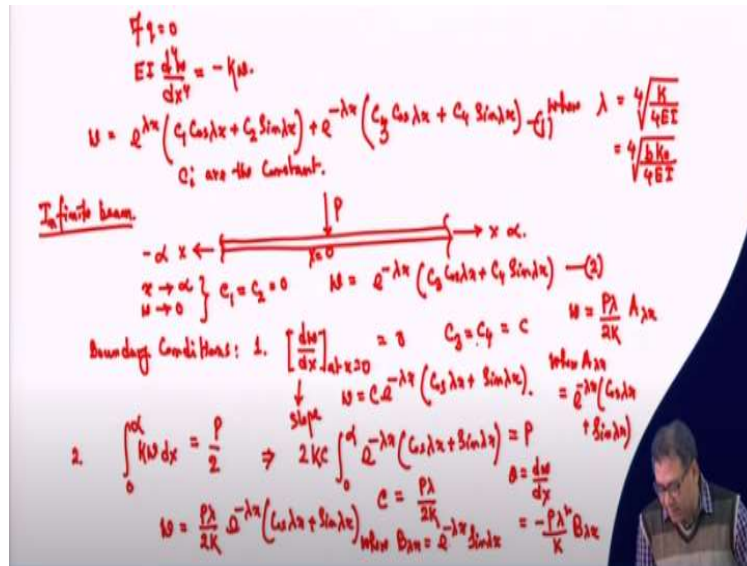 If q = 0
EI d⁴w/dx⁴ = - Kw.
w = e^λx (C₁ Cos λx + C₂ Sin λx) + e^-λx (C₃ Cos λx + C₄ Sin λx) —(1) where λ = ⁴√(K/4EI)
= ⁴√(bK₀/4EI)
Cᵢ are the Constant.
Infinite beam.
P
-α x ← x=0 → x α.
x → α
w → 0 } C₁ = C₂ = 0 w = e^-λx (C₃ Cos λx + C₄ Sin λx) —(2)
w = Pλ/2K A_λx
Boundary Conditions: 1. [dw/dx] at x=0 = 0 C₃ = C₄ = C
↓
slope
w = C e^-λx (Cos λx + Sin λx).
when A_λx
= e^-λx (Cos λx
+ Sin λx)
2. ∫₀^α Kw dx = P/2 ⇒ 2KC ∫₀^α e^-λx (Cos λx + Sin λx) = P
C = Pλ/2K
θ = dw/dx
= -Pλ²/K B_λx
w = Pλ/2K e^-λx (Cos λx + Sin λx)
where B_λx = e^-λx Sin λx